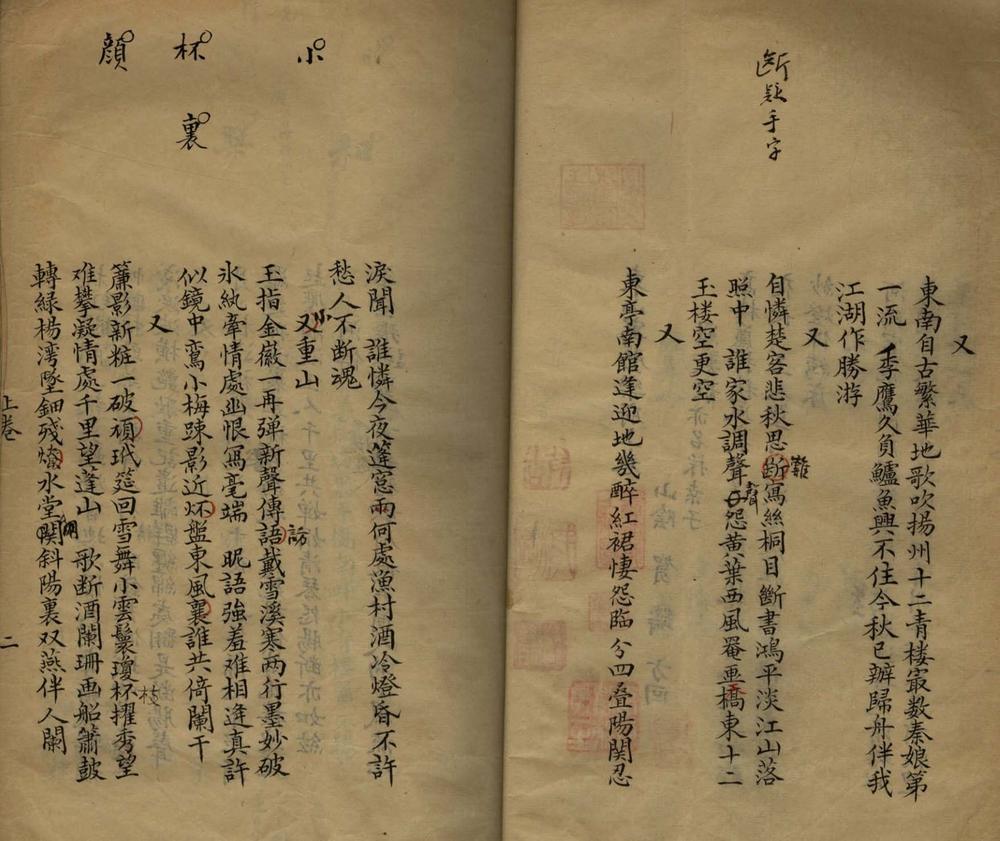 又
東南自古繁華地歌吹揚州十二青楼冣数秦娘第
一流　季鷹久負鱸魚興不住今秋已辦歸舟伴我
江湖作勝游
又
自憐楚客悲秋思断寫絲桐目斷書鴻平淡江山落
難
照中　誰家水調聲怨黄葉西風罨畫橋東十二
聲
玉楼空更空
又
東亭南館逢迎地幾醉紅裙悽怨臨分四叠陽関忍
断
手字
淚聞　誰憐今夜篷窓雨何處漁村酒冷燈昏不許
愁人不断魂
又重山
小
玉指金徽一再弹新聲傳語戴雪溪寒两行墨妙破
訪
氷紈牽情處幽恨寫毫端　昵語強羞难相逢真許
似鏡中鸞小梅踈影近盤東風襄誰共倚闌干
又
簾影新粧一破頑玳筵回雪舞小雲鬟瓊杯擢秀望
枝
难攀凝情處千里望蓬山　歌断酒闌珊画船簫鼓
轉緑楊湾墜鈿殘水堂関斜陽裏双燕伴人闌
小
杯
裏
顔
上巻
二